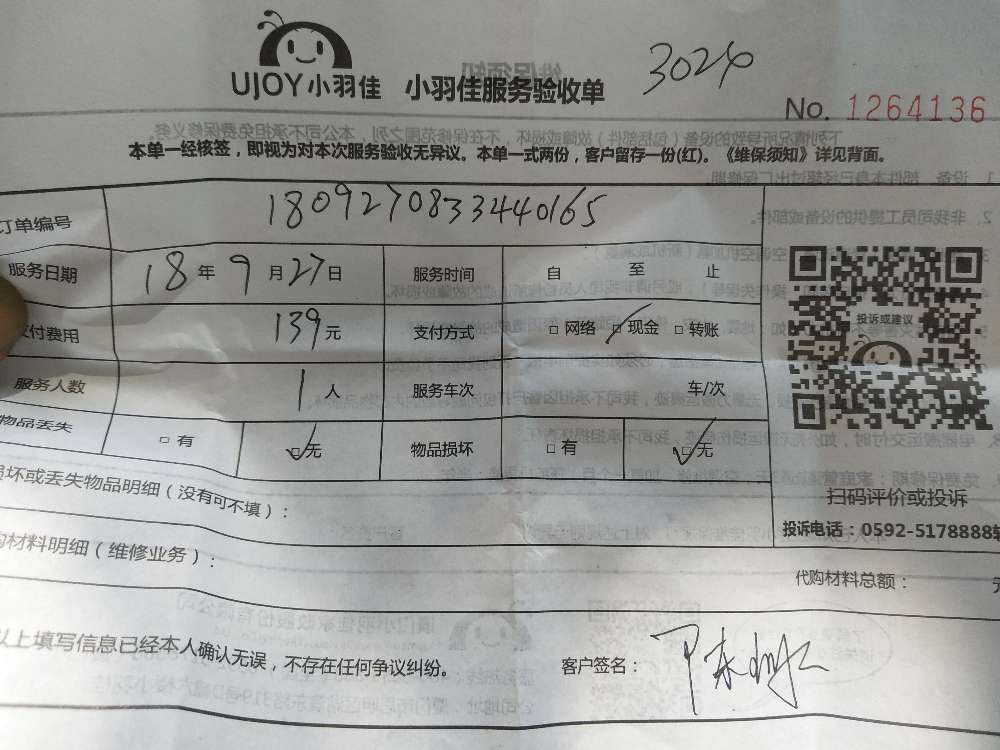 UJOY小羽佳 小羽佳服务验收单 3024
No. 1264136
本单一经核签，即视为对本次服务验收无异议。本单一式两份，客户留存一份(红)。《维保须知》详见背面。
订单编号 1809270833440165
服务日期 18年9月27日 服务时间 自 至 止
支付费用 139元 支付方式 □网络 ☑现金 □转账
服务人数 1人 服务车次 车/次
物品丢失 □有 ☑无 物品损坏 □有 ☑无
投诉或建议
扫码评价或投诉
投诉电话：0592-5178888转
损坏或丢失物品明细（没有可不填）：
购材料明细（维修业务）：
代购材料总额： 元
以上填写信息已经本人确认无误，不存在任何争议纠纷。 客户签名：